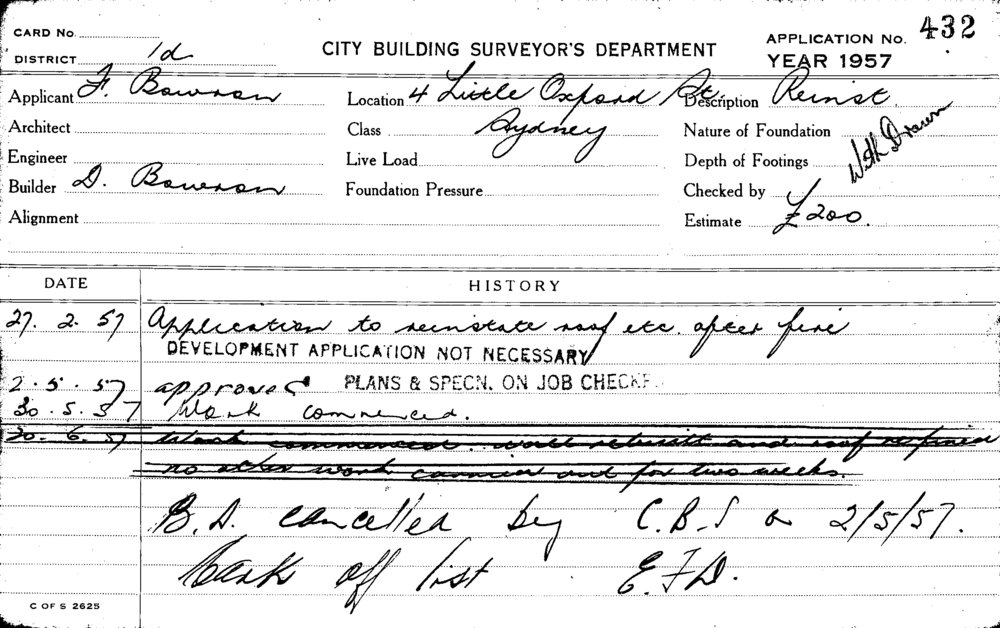 CARD No.
DISTRICT 1d
CITY BUILDING SURVEYOR'S DEPARTMENT
APPLICATION No. 432
YEAR 1957
Applicant F. Bowron Location 4 Little Oxford St. Description Reinst.
Architect Class Sydney Nature of Foundation
With Drawn
Engineer Live Load Depth of Footings
Builder D. Bowron Foundation Pressure Checked by
Alignment Estimate £200.
DATE HISTORY
27. 2. 57 Application to reinstate roof etc. after fire
DEVELOPMENT APPLICATION NOT NECESSARY
2. 5. 57 approved PLANS & SPECN. ON JOB CHECKE
30. 5. 57 Work commenced.
30. 6. 57 Work commenced. wall rebuilt and roof
no other work carried out for two weeks.
B.A. cancelled by C.B.S on 2/5/57.
mark off list E.F.D.
C OF S 2625